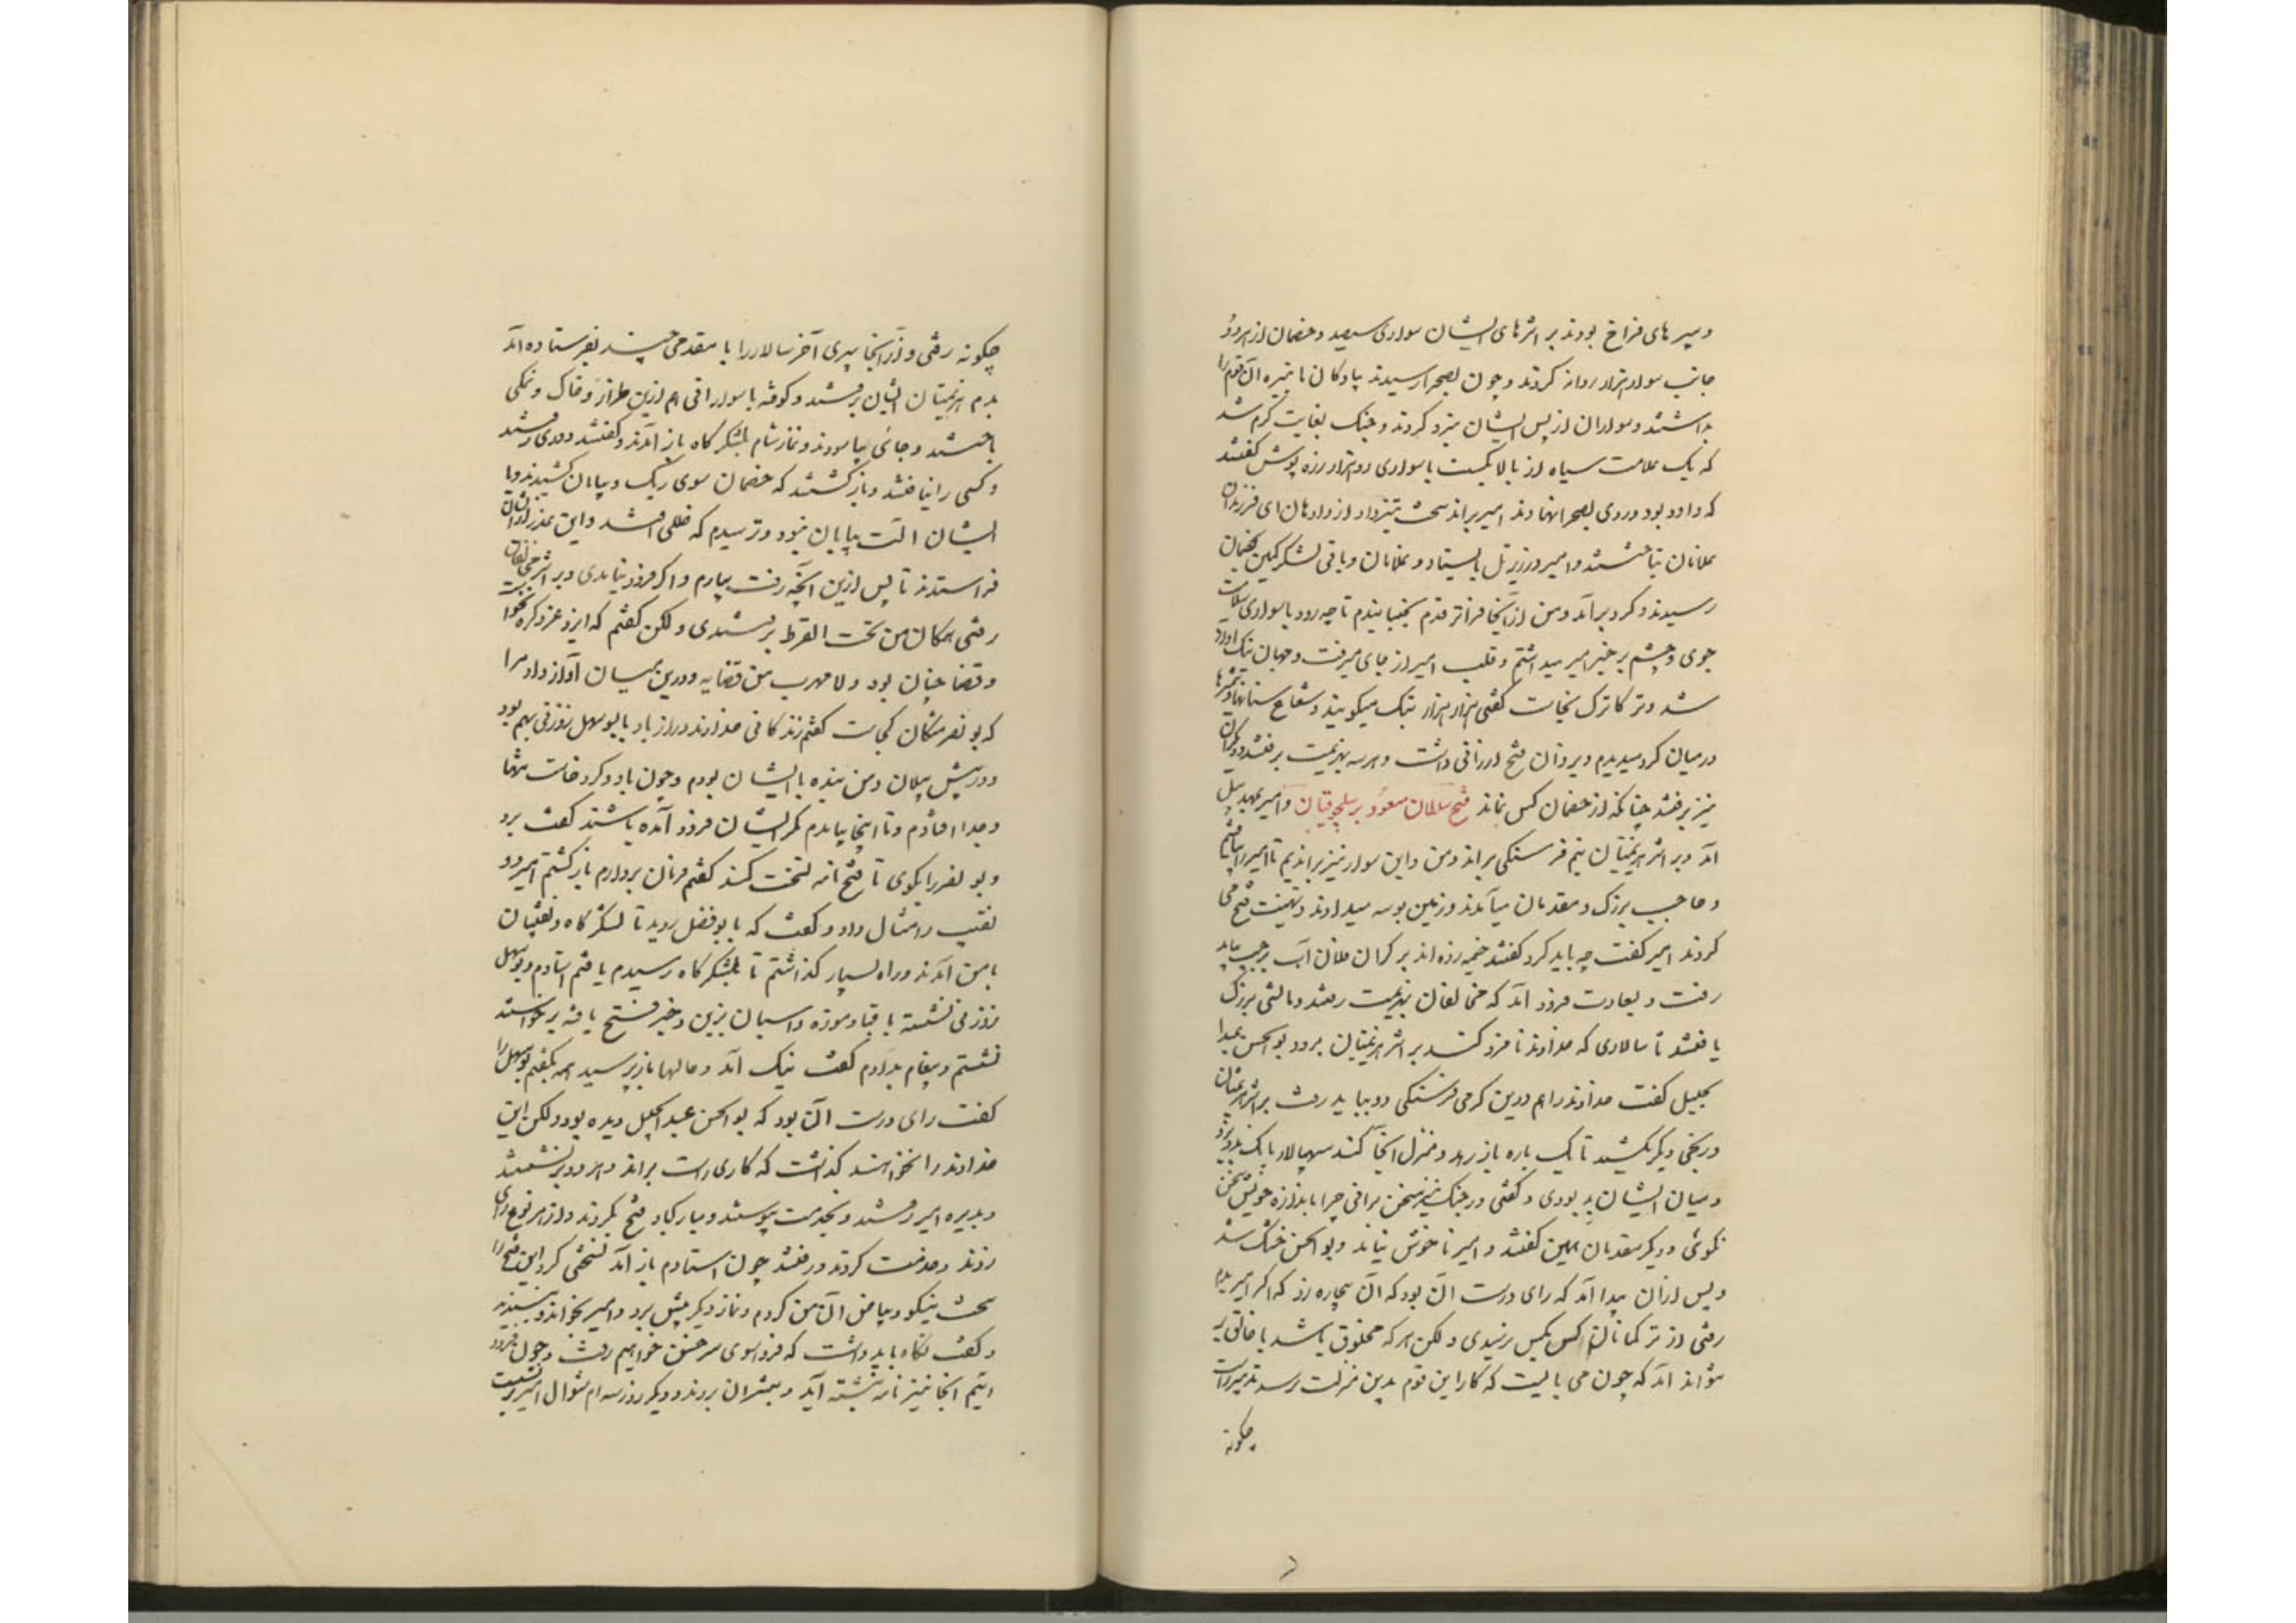 و سپر های فراخ بودند بر اثرهای ایشان سواری سیصد و خصمان از هر دو
جانب سوار هزار روانه کردند و چون بصحرا رسیدند پیادگان ما نیزه آن قوم را
بداشتند و سواران از پس ایشان نیزه کردند و جنگ بغایت گرم شد
که یک علامت سیاه از بالا بگسست با سواری دو هزار زره پوش گفتند
که داود بود و روی بصحرا نهادند امیر براند سخت تیز و داد از دادهان ای فرزندان
غلامان بتاختند و امیر در زیر تل بایستاد و غلامان و باقی لشکر کمین بخصمان
رسیدند و گرد برآمد و من از آنجا فراتر قدم بجنبانیدم تا چه رود با سواری سه
جوی و چشم بر خیر امیر میداشتم و قلب امیر از جای میرفت و جهان بنگ اواز
شد و ترکاترک بخاست گفتی هزار هزار بتک میکوبند و شعاع سنانها و شمشیرها
در میان گرد میدیدم و یزدان فتح ارزانی داشت و هر سه بهزیمت برفتند و دیگران
نیز برفتند چنانکه از خصمان کس نماند فتح سلطان مسعود بر سلجوقیان و امیر بمهد پیل
آمد و بر اثر هزیمتیان نیم فرسنگی براند و من و این سوار نیز براندیم تا امیر را بیافتیم
و حاجب بزرگ و مقدمان میآمدند و زمین بوسه میدادند و تهنیت فتح می
کردند امیر گفت چه باید کرد گفتند خیمه زده اند بر کران فلان آب بر چپ باید
رفت و بسعادت فرود آمد که مخالفان بهزیمت رفتند و مالشی بزرگ
یافتند تا سالاری که خداوند نامزد کند بر اثر هزیمتیان برود بوالحسن عبد
الجلیل گفت خداوند را هم درین گرمی فرسنگی دو بباید رفت بر اثر هزیمتیان
و رنجی دیگر بکشید تا یک باره باز رهد و منزل آنجا کند سپهسالار بانگ بر وی زد
و میان ایشان بد بودی و گفتی در جنگ نیز سخن برانی چرا باندازه خویش سخن
نگوئی و دیگر مقدمان همین گفتند و امیر ناخوش نیامد و بوالحسن خشک شد
و پس ازان پیدا آمد که رای درست آن بود که آن بیچاره زد که اگر امیر بدم
رفتی از ترکمانان کس بکس نرسیدی و لکن هر که مخلوق باشد با خالق بر
نتواند آمد که چون می بایست که کار این قوم بدین منزلت رسد تدبیر راست
چگونه
چگونه رفتی و از آنجا پیری آخر سالار را با مقدمی چند بفرستاده آمد
بدم هزیمتیان ایشان برفتند و کوفته با سوارانی هم ازین طراز و خاک و نمکی
باختند و جائی بیاسودند و نماز شام بلشکرگاه باز آمدند و گفتند دوری رفتند
و کسی را نیافتند و بازگشتند که خصمان سوی ریگ و بیابان کشیدند و با
ایشان آلت بیابان نبود و ترسیدم که خللی افتد و این عذر ازیشان
فراستدند تا پس ازین آنچه رفت بیارم و اگر فرود نیامدی و بر اثر مخالفان
رفتی همگان من تحت القرط برفتندی و لکن گفتم که ایزد عز ذکره نخواست
و قضا چنان بود و لا مهرب من قضایه و درین میان آواز داد مرا
که بونصر مشکان کجاست گفتم زندگانی خداوند دراز باد با بوسهل زوزنی بهم بود
و در پیش پیلان و من بنده با ایشان بودم و چون باد و گرد خاست تنها
و جدا افتادم و تا اینجا بیامدم مگر ایشان فرود آمده باشند گفت برو
و بونصر را بگوی تا فتح نامه نسخت کند گفتم فرمان بردارم بازگشتم امیر دو
نقیب را مثال داد و گفت که با بوفضل روید تا لشکرگاه و نقیبان
با من آمدند و راه بسیار گذاشتم تا بلشکرگاه رسیدم یافتم استادم و بوسهل
زوزنی نشسته با قبا و موزه و اسبان بزین و خبر فتح یافته برخواستند
نشستم و پیغام بدادم گفت نیک آمد و حالها باز پرسید همه بگفتم بوسهل را
گفت رای درست آن بود که بوالحسن عبدالجلیل دیده بود و لکن این
خداوند را نخواهند گذاشت که کاری راست براند و هر دو برنشستند
و پذیره امیر رفتند و بخدمت پیوستند و مبارکباد فتح بکردند و از هر نوع رای
زدند و خدمت کردند و رفتند چون استادم باز آمد نسختی کرد این فتح را
سخت نیکو و بیاض آن من کردم و نماز دیگر پیش برد و امیر بخواند و بپسندید
و گفت نگاه باید داشت که فردا سوی سرخس خواهیم رفت و چون فرود
آئیم آنجا نیز نامه نبشته آید و مبشران بروند و دیگر روز سه ام شوال امیر برنشست